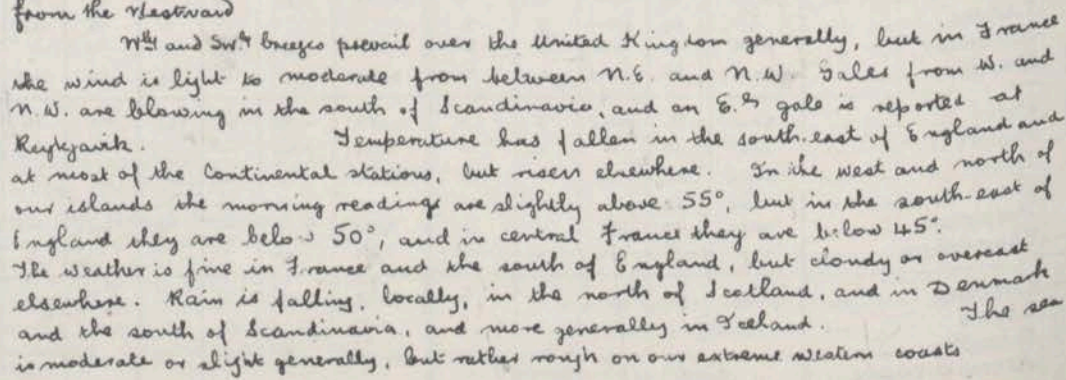 from the Westward
Wly and SWly breezes prevail over the United Kingdom generally, but in France
the wind is light to moderate from between N.E. and N.W. Gales from W. and
N.W. are blowing in the south of Scandinavia, and an E.ly gale is reported at
Reykjavik. Temperature has fallen in the south-east of England and
at most of the Continental stations, but risen elsewhere. In the west and north of
our islands the morning readings are slightly above 55°, but in the south-east of
England they are below 50°, and in central France they are below 45°.
The weather is fine in France and the south of England, but cloudy or overcast
elsewhere. Rain is falling, locally, in the north of Scotland, and in Denmark
and the south of Scandinavia, and more generally in Iceland. The sea
is moderate or slight generally, but rather rough on our extreme western coasts